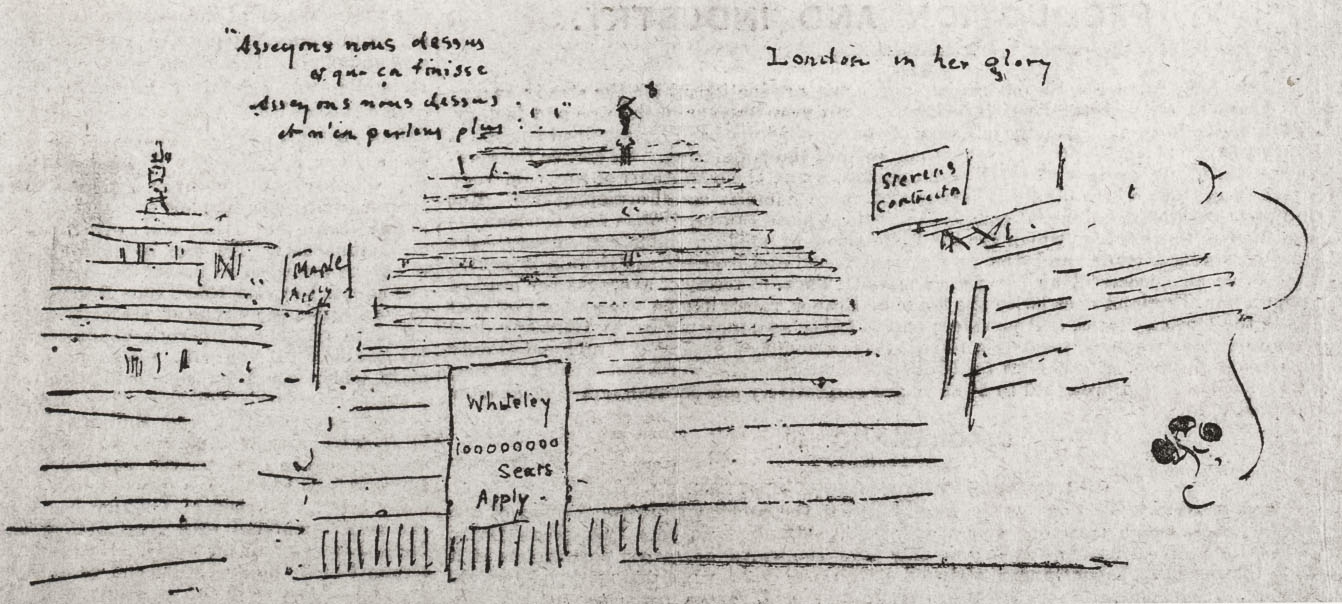 "Asseyons nous dessus
et que ça finisse
Asseyons nous dessus
et n'en parlons plus
London in her glory
Stevens
Contractor
Maple
Apply
Whiteley
Seats
Apply